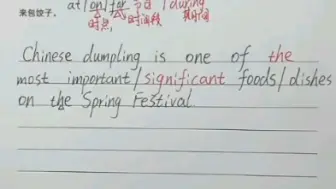 来包饺子。 at/on/for 节日 / during
时点, 时间段 其时间
Chinese dumpling is one of the
most important/significant foods/dishes
on the Spring Festival